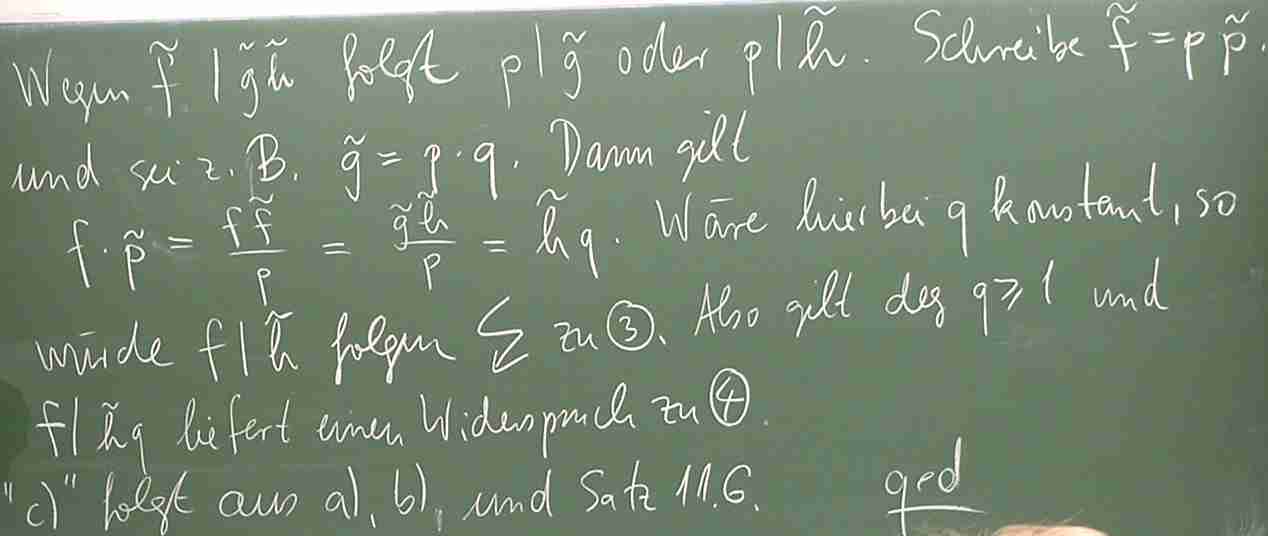 Wegen f̃ | g̃h̃ folgt p | g̃ oder p | h̃. Schreibe f̃ = p p̃.
und sei z.B. g̃ = p · q. Dann gilt
f · p̃ = f f̃ / p = g̃ h̃ / p = h̃ q. Wäre hierbei q konstant, so
würde f | h̃ folgen ↯ zu ③. Also gilt deg q ≥ 1 und
f | h̃ q liefert einen Widerspruch zu ④.
"c)" folgt aus a), b), und Satz 11.6. qed